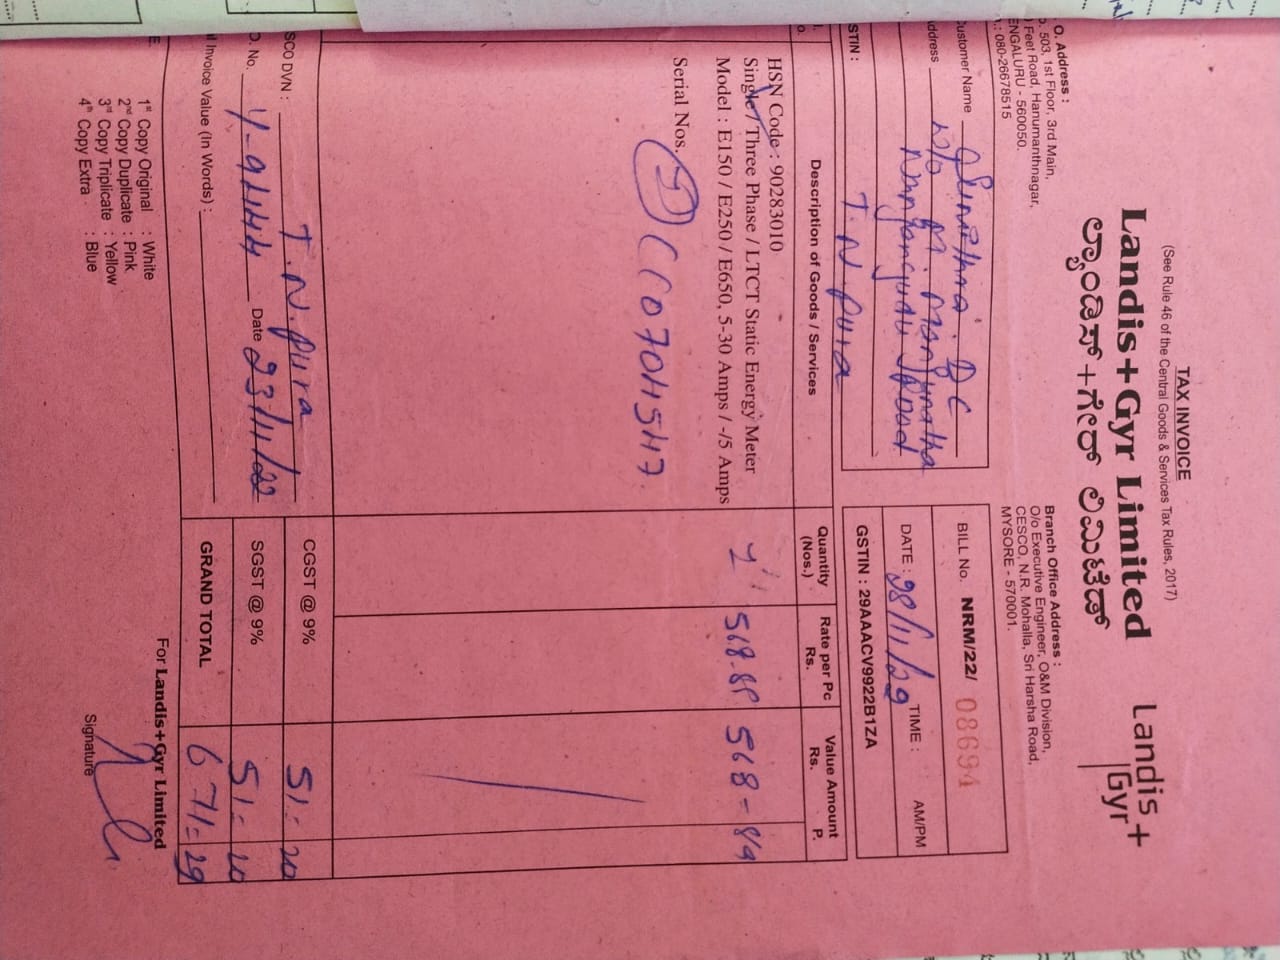 TAX INVOICE
(See Rule 46 of the Central Goods & Services Tax Rules, 2017)
Landis+Gyr Limited
ಲ್ಯಾಂಡಿಸ್+ಗೇರ್ ಲಿಮಿಟೆಡ್
Landis+
Gyr
O. Address :
503, 1st Floor, 3rd Main,
Feet Road, Hanumanthnagar,
ENGALURU - 560050.
.: 080-26678515
Branch Office Address :
O/o Executive Engineer, O&M Division,
CESCO, N.R. Mohalla, Sri Harsha Road,
MYSORE - 570001.
ustomer Name
ddress W/o M. Manjunatha
Nanjangudu Road
T. N. Pura
STIN :
BILL No. NRM/22/ 08694
DATE : 28/11/22 TIME : AM/PM
GSTIN : 29AAACV9922B1ZA
Description of Goods / Services
Quantity (Nos.)
Rate per Pc Rs.
Value Amount Rs. P.
HSN Code : 90283010
Single / Three Phase / LTCT Static Energy Meter
Model : E150 / E250 / E650, 5-30 Amps / -/5 Amps
1 568.89 568-89
Serial Nos.
SCO DVN : T. N. Pura
No. Date 23/11/22
Invoice Value (In Words) :
CGST @ 9% 51=20
SGST @ 9% 51=20
GRAND TOTAL 671=29
For Landis+Gyr Limited
Signature
1st Copy Original : White
2nd Copy Duplicate : Pink
3rd Copy Triplicate : Yellow
4th Copy Extra : Blue